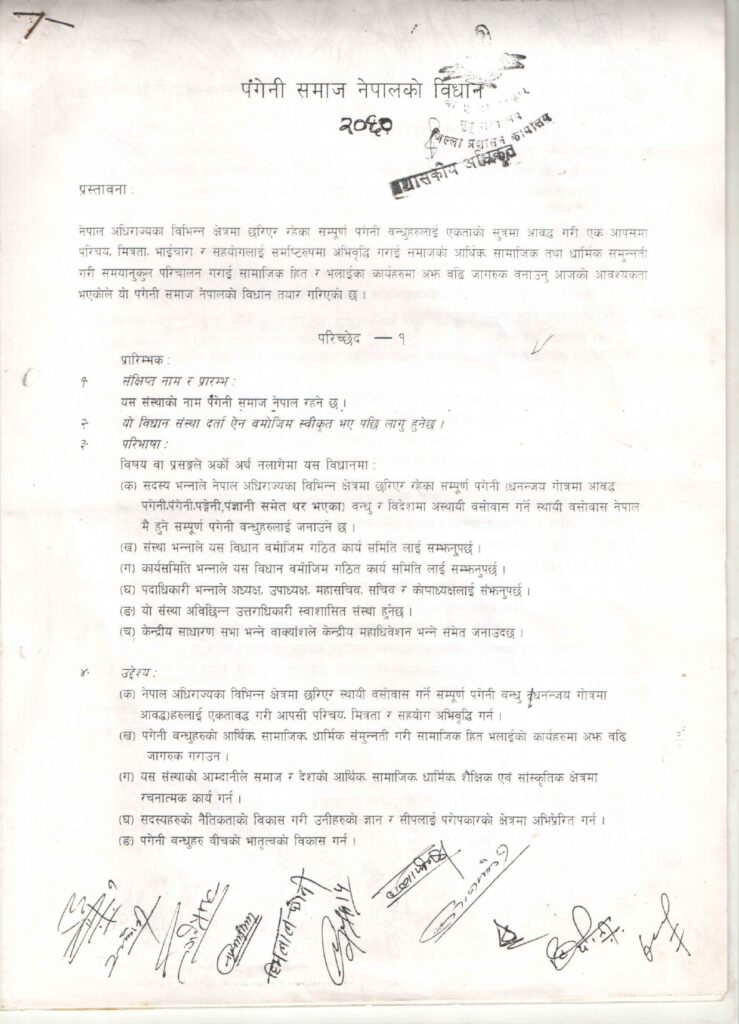 पंगेनी समाज नेपालको विधान
२०६०
जिल्ला प्रशासन कार्यालय
प्रशासकीय अधिकृत
प्रस्तावना :
नेपाल अधिराज्यका विभिन्न क्षेत्रमा छरिएर रहेका सम्पूर्ण पगेनी वन्धुहरुलाई एकताको सुत्रमा आवद्ध गरी एक आपसमा
परिचय, मित्रता, भाईचारा र सहयोगलाई समष्टिरुपमा अभिवृद्धि गराई समाजको आर्थिक, सामाजिक तथा धार्मिक समुन्नती
गरी समयानुकुल परिचालन गराई सामाजिक हित र भलाईका कार्यहरुमा अझ वढि जागरुक वनाउनु आजको आवश्यकता
भएकोले यो पगेनी समाज नेपालको विधान तयार गरिएको छ ।
परिच्छेद — १
प्रारिम्भक :
१. संक्षिप्त नाम र प्रारम्भ :
यस संस्थाको नाम पंगेनी समाज नेपाल रहने छ ।
२. यो विधान संस्था दर्ता ऐन वमोजिम स्वीकृत भए पछि लागु हुनेछ ।
३. परिभाषा :
विषय वा प्रसङ्गले अर्को अर्थ नलागेमा यस विधानमा :
(क) सदस्य भन्नाले नेपाल अधिराज्यका विभिन्न क्षेत्रमा छरिएर रहेका सम्पूर्ण पगेनी (धनन्जय गोत्रमा आवद्ध
पगेनी,पंगेनी,पङ्गेनी,पंज्ञानी समेत थर भएका) वन्धु र विदेशमा अस्थायी वसोवास गर्ने स्थायी वसोवास नेपाल
मै हुने सम्पूर्ण पगेनी वन्धुहरुलाई जनाउने छ ।
(ख) संस्था भन्नाले यस विधान वमोजिम गठित कार्य समिति लाई सम्झनुपर्छ ।
(ग) कार्यसमिति भन्नाले यस विधान वमोजिम गठित कार्य समिति लाई सम्झनुपर्छ ।
(घ) पदाधिकारी भन्नाले अध्यक्ष, उपाध्यक्ष, महासचिव, सचिव र कोषाध्यक्षलाई संझनुपर्छ ।
(ङ) यो संस्था अविछिन्न उत्तराधिकारी स्वाशासित संस्था हुनेछ ।
(च) केन्द्रीय साधारण सभा भन्ने वाक्यांशले केन्द्रीय महाधिवेशन भन्ने समेत जनाउदछ ।
४. उद्देश्य :
(क) नेपाल अधिराज्यका विभिन्न क्षेत्रमा छरिएर स्थायी वसोवास गर्ने सम्पूर्ण पगेनी वन्धु (धनन्जय गोत्रमा
आवद्ध)हरुलाई एकतावद्ध गरी आपसी परिचय, मित्रता र सहयोग अभिवृद्धि गर्न ।
(ख) पगेनी वन्धुहरुको आर्थिक, सामाजिक, धार्मिक संमुन्नती गरी सामाजिक हित भलाईका कार्यहरुमा अझ वढि
जागरुक गराउन ।
(ग) यस संस्थाको आम्दानीले समाज र देशको आर्थिक, सामाजिक, धार्मिक, शैक्षिक एवं सांस्कृतिक क्षेत्रमा
रचनात्मक कार्य गर्न ।
(घ) सदस्यहरुको नैतिकताको विकास गरी उनीहरुको ज्ञान र सीपलाई परोपकारको क्षेत्रमा अभिप्रेरित गर्न ।
(ङ) पगेनी वन्धुहरु वीचको भातृत्वको विकास गर्न ।